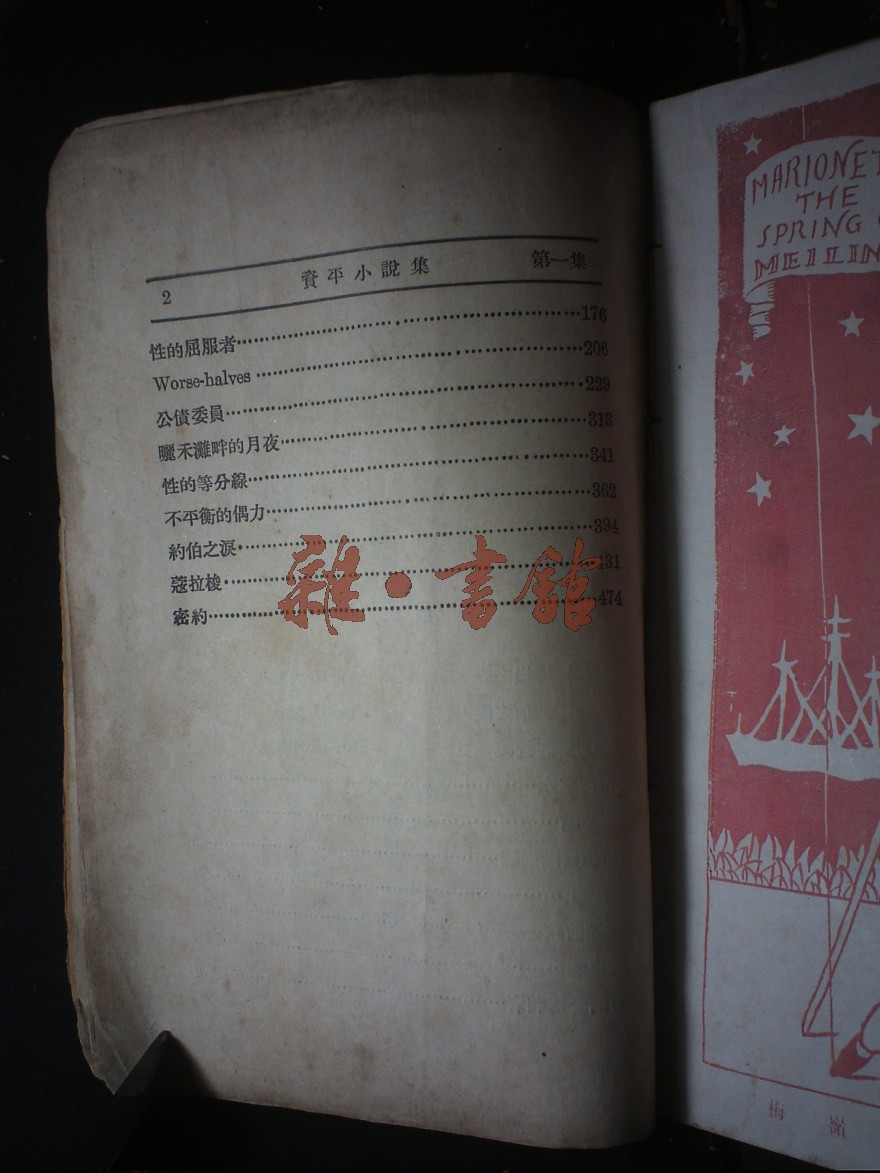 2 資平小說集 第一集
性的屈服者 176
Worse-halves 206
公債委員 229
曬禾灘畔的月夜 313
性的等分線 341
不平衡的偶力 362
約伯之淚 394
蔻拉梭 431
密約 474
雜·書館
MARIONET
THE
SPRING
MEILIN
梅嶺